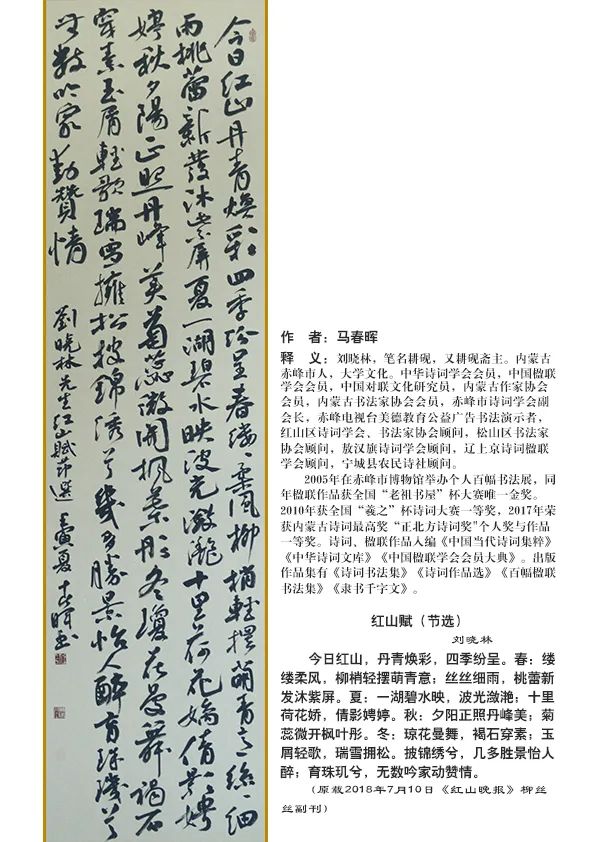 今日红山丹青焕彩四季纷呈春缕々柔风柳梢輕摆萌青意丝々细
雨桃蕾新发沐紫屏夏一湖碧水映波光潋滟十里荷花嬌倩影娉
婷秋夕陽正照丹峰美菊蕊微開枫葉彤冬瓊花曼舞褐石
穿素玉屑輕歌瑞雪擁松披錦绣兮幾多勝景怡人醉育珠璣兮
无数吟家動贊情
劉曉林先生红山賦节選 夏 春晖书
作 者：马春晖
释 义：刘晓林，笔名耕砚，又耕砚斋主。内蒙古
赤峰市人，大学文化。中华诗词学会会员，中国楹联
学会会员，中国对联文化研究员，内蒙古作家协会
会员，内蒙古书法家协会会员，赤峰市诗词学会副
会长，赤峰电视台美德教育公益广告书法演示者，
红山区诗词学会、书法家协会顾问，松山区书法家
协会顾问，敖汉旗诗词学会顾问，辽上京诗词楹联
学会顾问，宁城县农民诗社顾问。
2005年在赤峰市博物馆举办个人百幅书法展，同
年楹联作品获全国“老祖书屋”杯大赛唯一金奖。
2010年获全国“羲之”杯诗词大赛一等奖，2017年荣
获内蒙古诗词最高奖“正北方诗词奖”个人奖与作品
一等奖。诗词、楹联作品入编《中国当代诗词集粹》
《中华诗词文库》《中国楹联学会会员大典》。出版
作品集有《诗词书法集》《诗词作品选》《百幅楹联
书法集》《隶书千字文》。
红山赋（节选）
刘晓林
今日红山，丹青焕彩，四季纷呈。春：缕
缕柔风，柳梢轻摆萌青意；丝丝细雨，桃蕾新
发沐紫屏。夏：一湖碧水映，波光潋滟；十里
荷花娇，倩影娉婷。秋：夕阳正照丹峰美；菊
蕊微开枫叶彤。冬：琼花曼舞，褐石穿素；玉
屑轻歌，瑞雪拥松。披锦绣兮，几多胜景怡人
醉；育珠玑兮，无数吟家动赞情。
（原载2018年7月10日《红山晚报》柳丝
丝副刊）